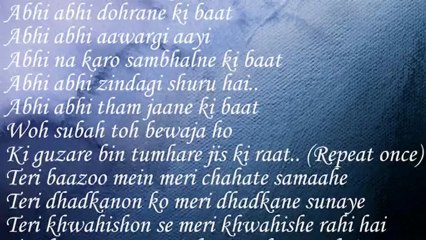 Abhi abhi dohrane ki baat
Abhi abhi aawargi aayi
Abhi na karo sambhalne ki baat
Abhi abhi zindagi shuru hai..
Abhi abhi tham jaane ki baat
Woh subah toh bewaja ho
Ki guzare bin tumhare jis ki raat.. (Repeat once)
Teri baazoo mein meri chahate samaahe
Teri dhadkanon ko meri dhadkane sunaye
Teri khwahishon se meri khwahishe rahi hai